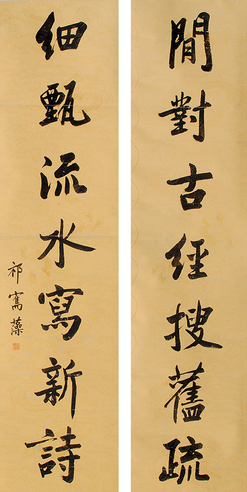 閒對古經搜舊疏
細甄流水寫新詩
祁寯藻